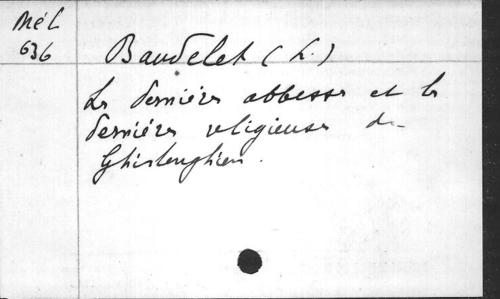 Mél
636
Baudelet (L.)
La dernière abbesse et la
dernière religieuse de
Ghislenghien.